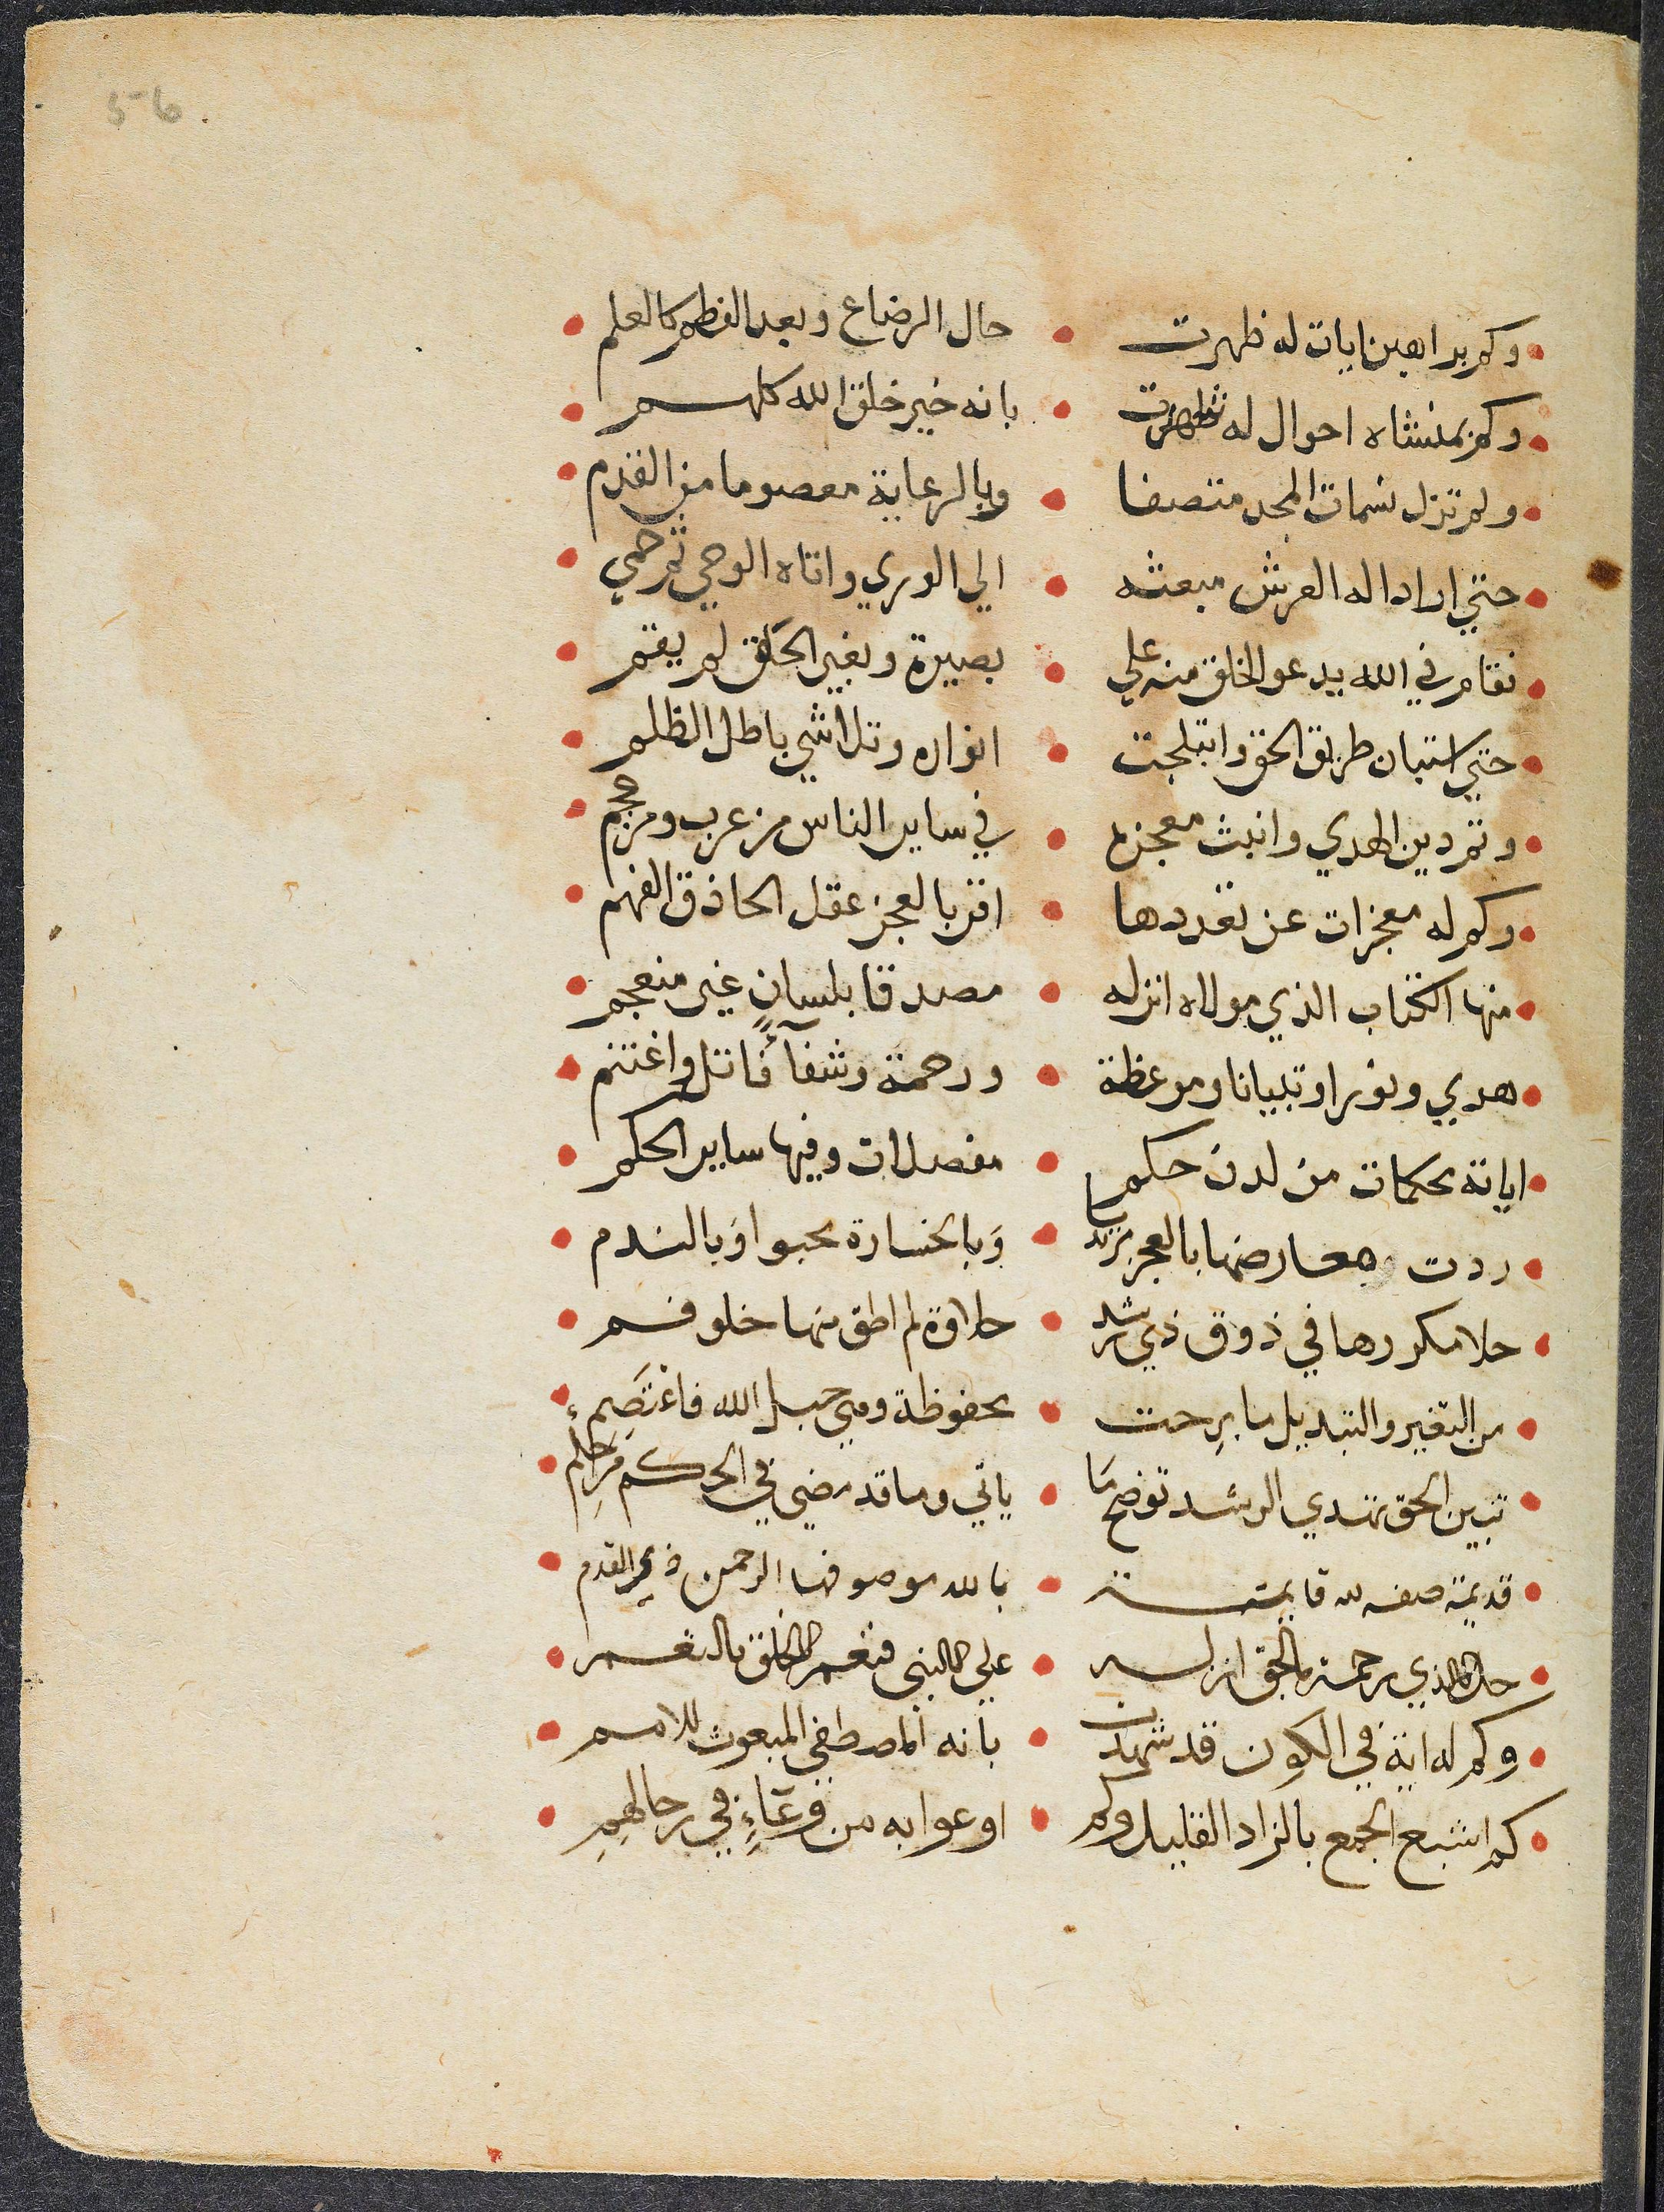 5-6
وكم براهين ايات له ظهرت • حال الرضاع وبعد الفطم كالعلم
وكم بمنشاه احوال له شهرت • بانه خير خلق الله كلهم
ولم تزل بسمات المجد متصفا • وبالرعاية معصوما من القدم
حتي اراد اله العرش مبعثه • الي الوري واتاه الوحي ثم حمي
فقام في الله يدعو الخلق منه علي • بصيرة وبغير الحق لم يقم
حتي استبان طريق الحق وابتلجت • انواره وتلاشي باطل الظلم
وتم دين الهدي وانبث معجزه • في ساير الناس من عرب ومن عجم
وكم له معجزات عن تعددها • اقر بالعجز عقل الحاذق الفهم
منها الكتاب الذي مولاه انزله • مصدقا بلسانٍ غير منعجم
هدي ونورا وتبيانا وموعظة • ورحمة وشفآءً فاتل واغتنم
اياته محكمات من لدن حكم • مفصلات وفيها ساير الحكم
ردت معارضها بالعجز مرتديا • وبالخسارة محبوا وبالندم
حلا مكررها في ذوق ذي رشد • حلاوة لم اطق منها خلو فم
من التغير والتبديل ما برحت • محفوظة وهي حبل الله فاعتصم
تبين الحق تهدي الرشد توضح ما • ياتي وما قد مضي في الحكم من حلم
قديمة صفه لله قايمة • بالله موصوفها الرحمن ذي القدم
جل الذي رحمة بالحق انزله • علي النبي فنعم الخلق بالنعم
وكم له اية في الكون قد شهدت • بانه المصطفي المبعوث للامم
كم اشبع الجمع بالزاد القليل وكم • اوعوا به من وعَاءٍ في رحالهم